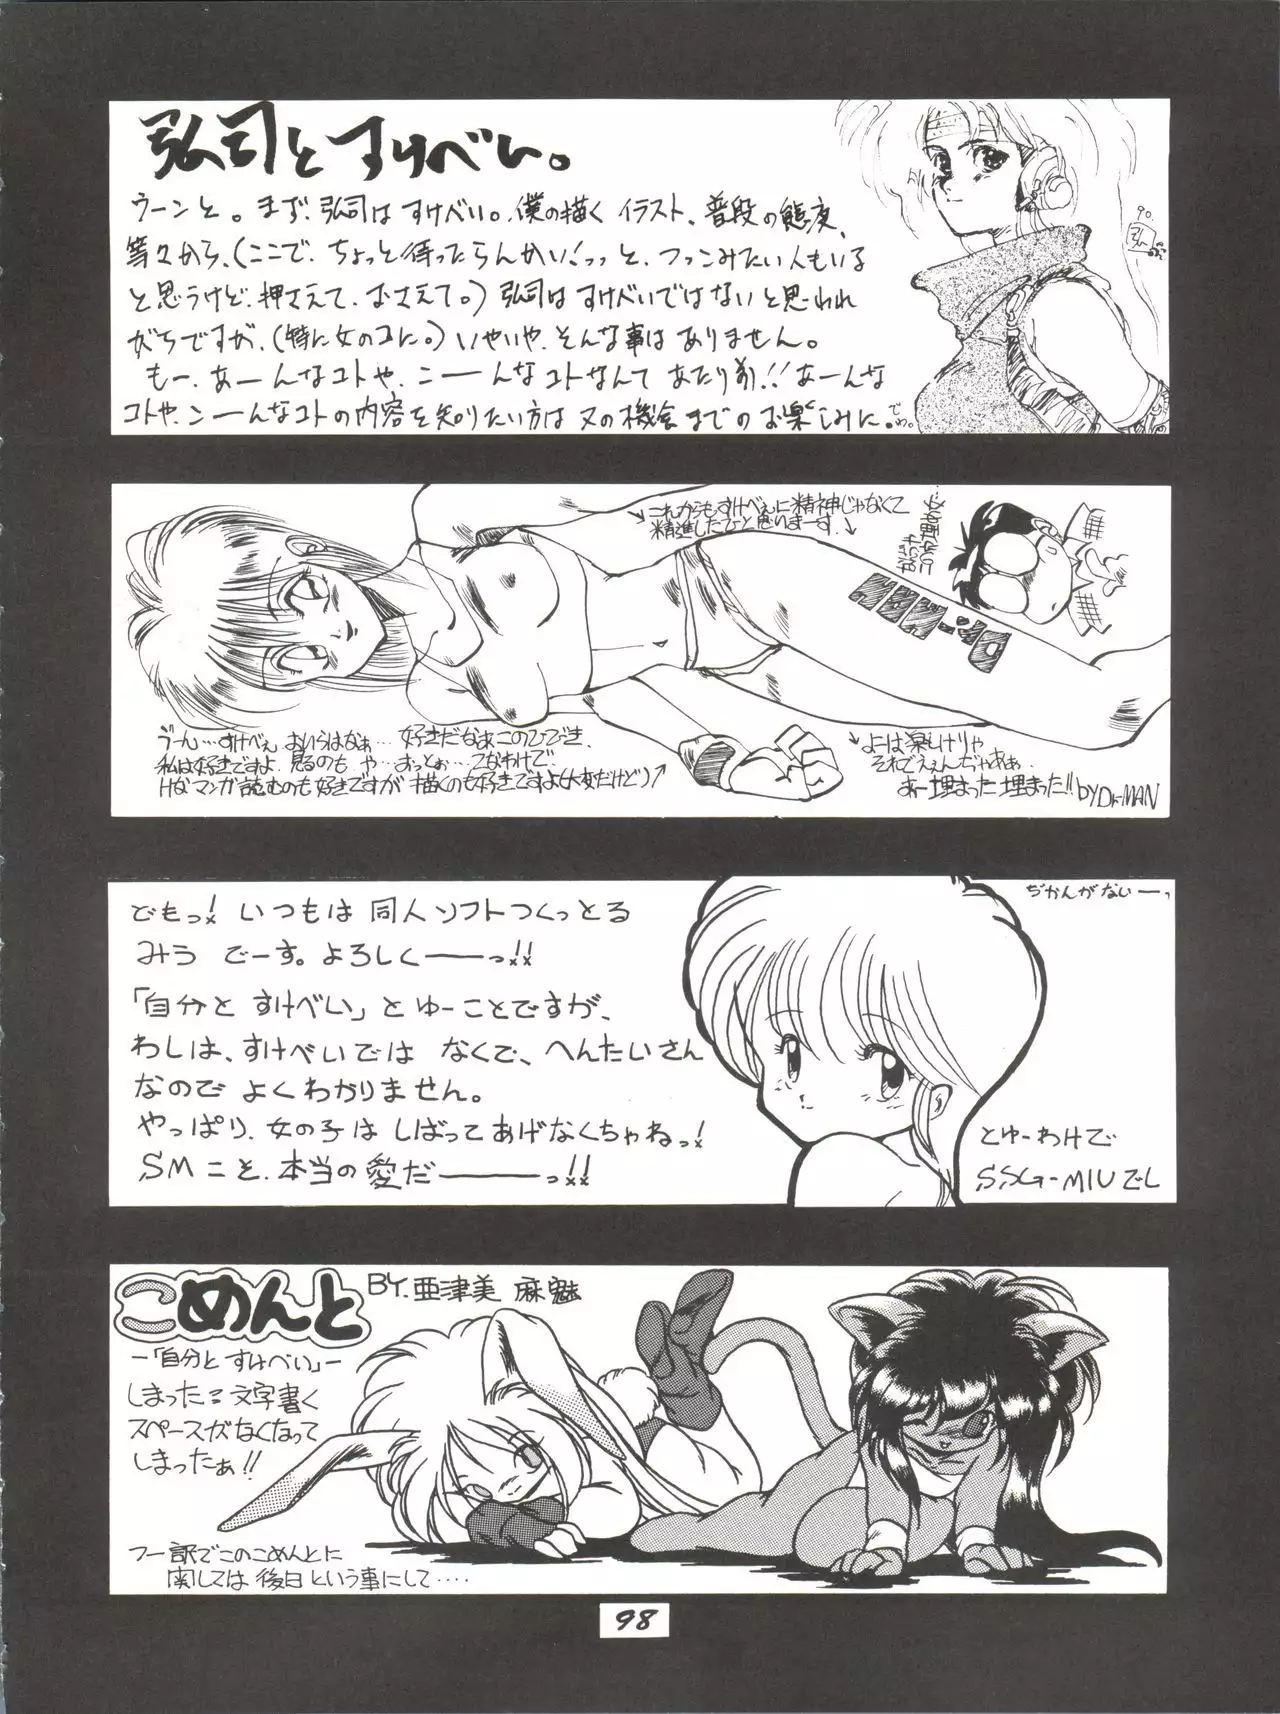 弘司とすけべい。
ウーンと。まず、弘司はすけべい。僕の描くイラスト、普段の態度、
等々から、(ここで、ちょっと待ったらんかい!っっと、つっこみたい人もいる
と思うけど、押さえて、おさえて。)弘司はすけべいではないと思われ
がちですが、(特に女のコに。)いやいや、そんな事はありません。
もー、あーんなコトや、こーーんなコトなんてあたり前!!あーんな
コトや、こーーんなコトの内容を知りたい方は又の機会までのお楽しみに。でわ。
90.
弘
これからもすけべぇに精神じゃなくて
精進したひと思いまーす。
うーん…すけべぇ おいらはなぁ… 好きだなぁこのひびき、
私は好きですよ、見るのも や…おっとぉ…てなわけで
けなマンガ読むのも好きですが 描くのも好きですよ(女だけど)
よーは楽しけりゃ
それでええんぢゃああ…
あー埋まった埋まった!! by Dr.MAN
どもっ! いつもは 同人ソフトつくっとる
みう でーす。よろしくーーっ!!
「自分と すけべい」と ゆーことですが、
わしは、すけべいでは なくて、へんたいさん
なので よくわかりません。
やっぱり、女の子は しばってあげなくちゃねっ!
SMこそ、本当の愛だーーーっ!!
ぢかんがないーっ
とゆーわけで
SSG-MIUでし
こめんと
BY.亜津美 麻魅
ー「自分と すけべい」ー
しまった= 文字書く
スペースがなくなって
しまったぁ!!
フー訳でこのこめんとに
関しては 後日という事にして‥‥
98